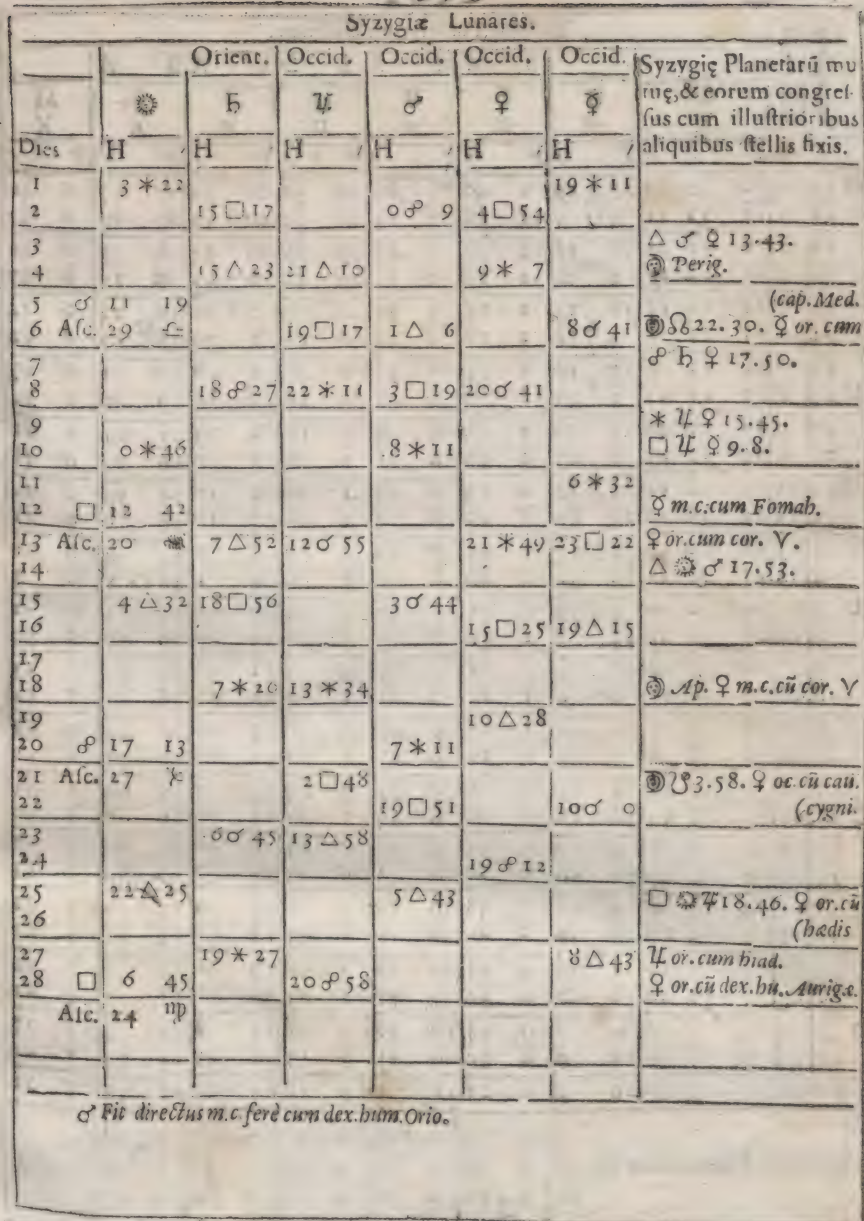 Syzygiæ Lunares.
Orient. Occid. Occid. Occid. Occid. Syzygię Planetarũ mu
♄ ♃ ♂ ♀ ☿ tuę, & eorum congreſ
ſus cum illuſtrioribus
Dies H H H H H H aliquibus ſtellis fixis.
1 3 ⚹ 22 19 ⚹ 11
2 15 □ 17 0 ☍ 9 4 □ 54
3 △ ♂ ☿ 13.43.
4 15 △ 23 21 △ 10 9 ⚹ 7 Perig.
5 ☌ 11 19 (cap. Med.
6 Aſc. 29 ♎ 19 □ 17 1 △ 6 8 ☌ 41 ☊ 22.30. ☿ or. cum
7 ☍ ♄ ♀ 17.50.
8 18 ☍ 27 22 ⚹ 11 3 □ 19 20 ☌ 41
9 ⚹ ♃ ♀ 15.45.
10 0 ⚹ 46 8 ⚹ 11 □ ♃ ☿ 9.8.
11 6 ⚹ 32
12 □ 12 42 ☿ m.c. cum Fomah.
13 Aſc. 20 7 △ 52 12 ☌ 55 21 ⚹ 49 23 □ 22 ♀ or. cum cor. ♈.
14 △ ☉ ♂ 17.53.
15 4 △ 32 18 □ 56 3 ☌ 44
16 15 □ 25 19 △ 15
17
18 7 ⚹ 20 13 ⚹ 34 Ap. ♀ m.c. cũ cor. ♈
19 10 △ 28
20 ☍ 17 13 7 ⚹ 11
21 Aſc. 27 2 □ 48 ☋ 3.58. ♀ oc. cũ cau.
22 19 □ 51 10 ☍ 0 (cygni.
23 6 ☌ 45 13 △ 58
24 19 ☍ 12
25 22 △ 25 5 △ 43 □ ☉ ♃ 18.46. ♀ or. cũ
26 (hædis
27 19 ⚹ 27 8 △ 43 ♃ or. cum hiad.
28 □ 6 45 20 ☍ 58 ♀ or. cũ dex. hu. Aurigæ.
Aſc. 24 ♍
♂ Fit directus m.c. ferè cum dex. hum. Orio.